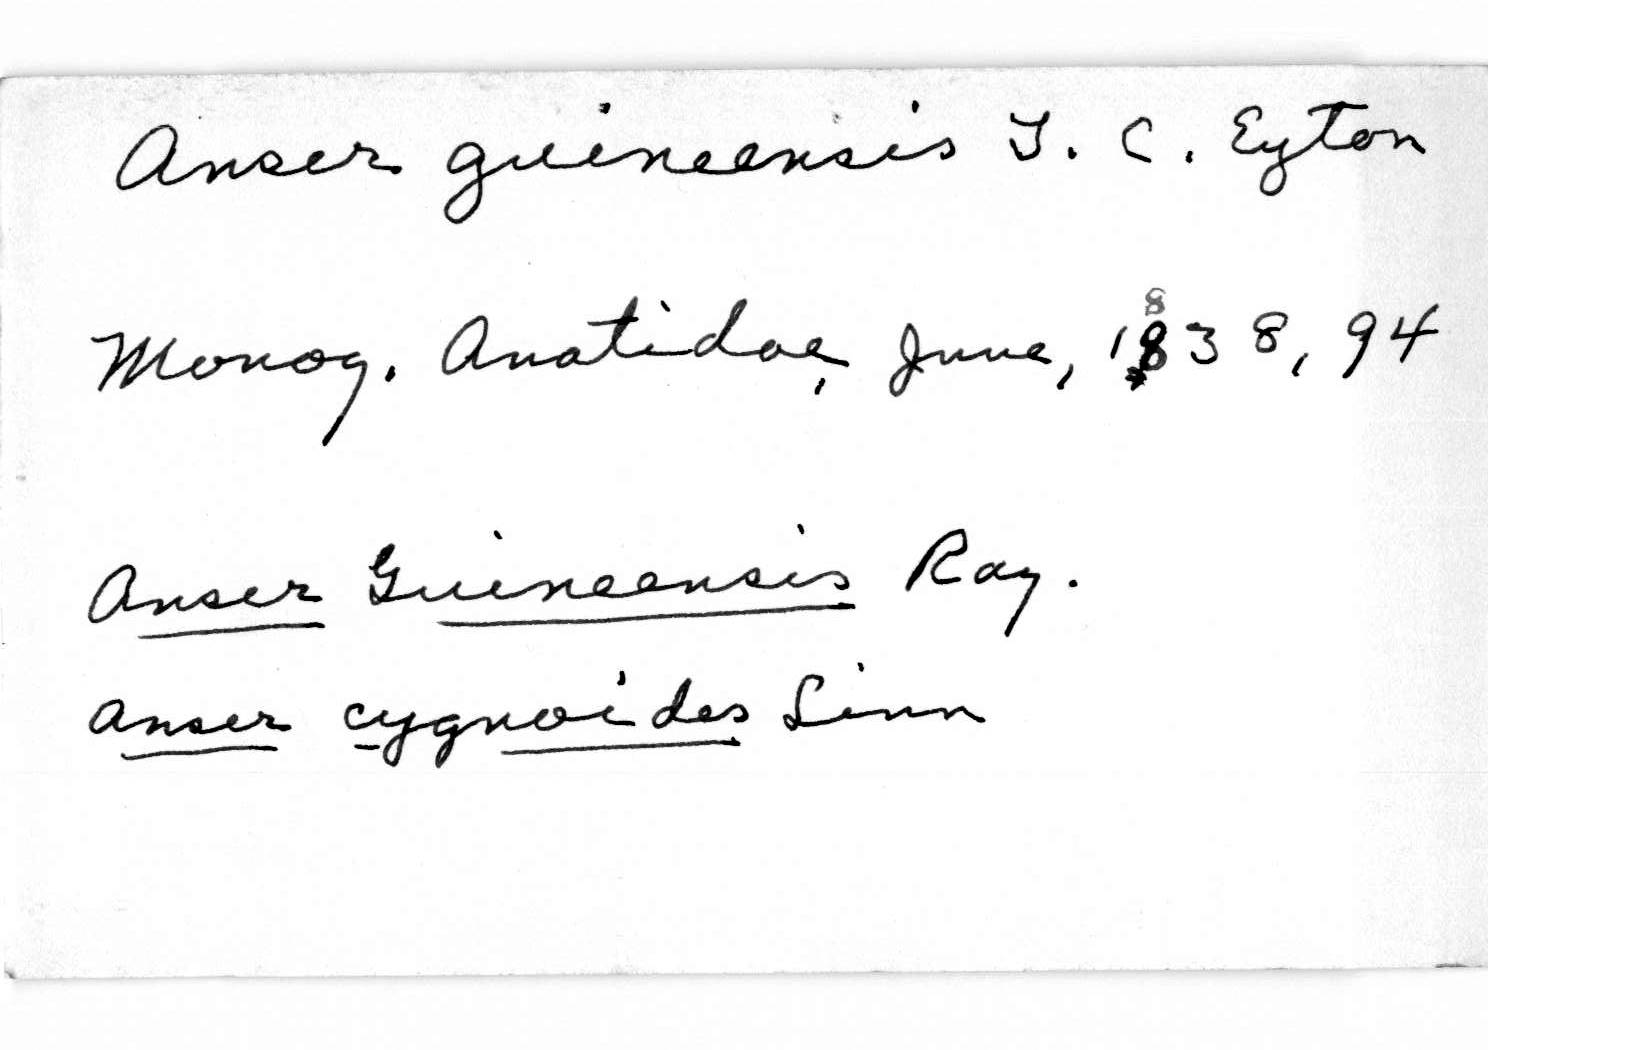 Anser guineensis T. C. Eyton
Monog. Anatidae, June, 1838, 94
Anser Guineensis Ray.
Anser cygnoides Linn